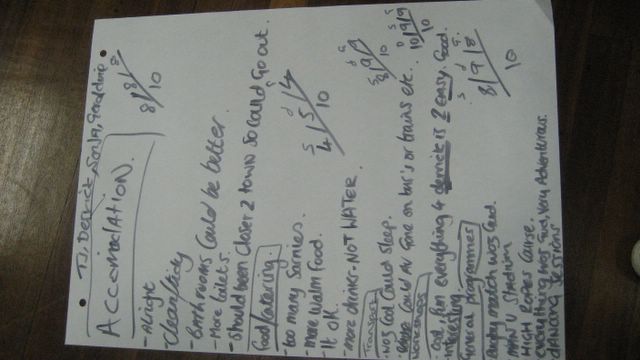 TJ, Derrick, Sonia, Geraldine
ACCOMODATION.
8/8/8
10
- Alright
- clean/tidy
- Bathrooms could be better.
- More toilets.
- Should been closer 2 town so could go out.
Food/catering.
- too many Sarnies.
- more warm food.
- It ok.
- more drinks - NOT WATER.
S d G
4/5/4
10
Transport
8/9/9
10
- NOT God could sleep.
could Av gone on bus's or trains etc.
Workshops
10/9/9
10
fun everything 4 derrick is 2 easy. Good.
interesting.
General programmes
S d G
8/9/8
10
match was Gud.
MAN U Stadium
HIGH ROPES COURSE.
everything was Gud, Very Adventurous.
DANCING SESSIONS